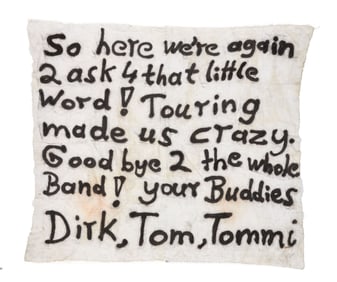 So here we're again
2 ask 4 that little
Word! Touring
made us crazy.
Good bye 2 the whole
Band! your Buddies
Dirk, Tom, Tommi